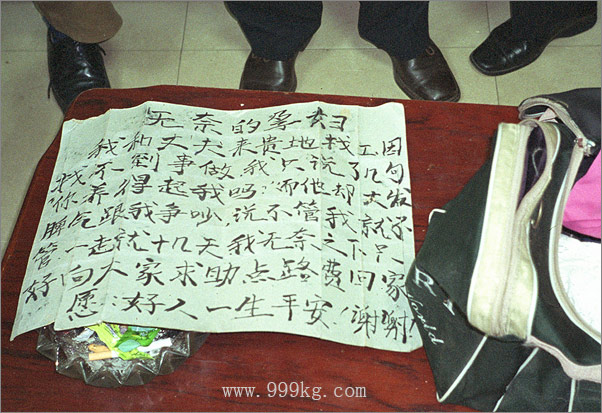 无奈的妇
我和丈夫来贵地找工因
找不到事做我只说几句
你养得起我吗?而他却大发
脾气跟我争吵,说不管我就不
管.一走就十几天我无奈之下只
好向大家求助点路费回家
愿:好人一生平安!谢谢!
www.999kg.com